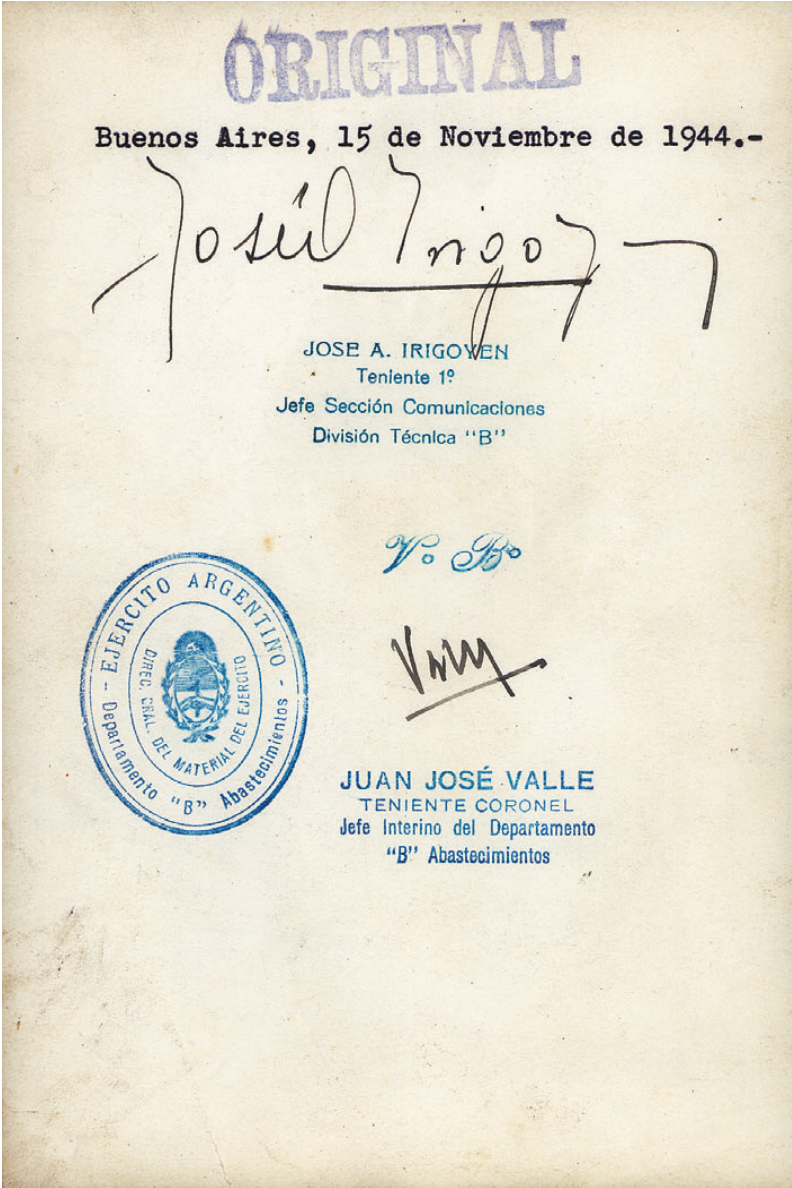 ORIGINAL
Buenos Aires, 15 de Noviembre de 1944.-
José Irigoy
JOSE A. IRIGOYEN
Teniente 1º
Jefe Sección Comunicaciones
División Técnica "B"
Vº Bº
- EJERCITO ARGENTINO -
DIREC. GRAL. DEL MATERIAL DEL EJERCITO
Departamento "B" Abastecimientos
JUAN JOSÉ VALLE
TENIENTE CORONEL
Jefe Interino del Departamento
"B" Abastecimientos